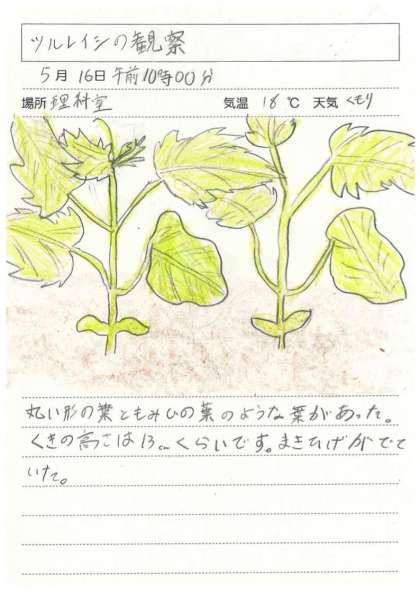 ツルレイシの観察
5月 16日 午前10時00分
場所 理科室 気温 18 ℃ 天気 くもり
丸い形の葉ともみじの葉のような葉があった。
くきの高さは13cmくらいです。まきひげがでて
いた。